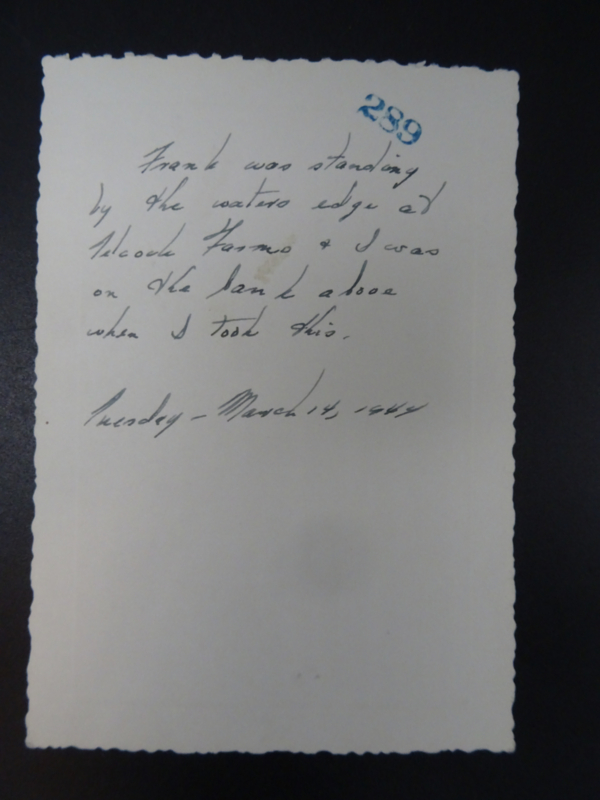 289
Frank was standing
by the waters edge at
Farms & I was
on the bank above
when I took this.
Tuesday - March 14, 1944